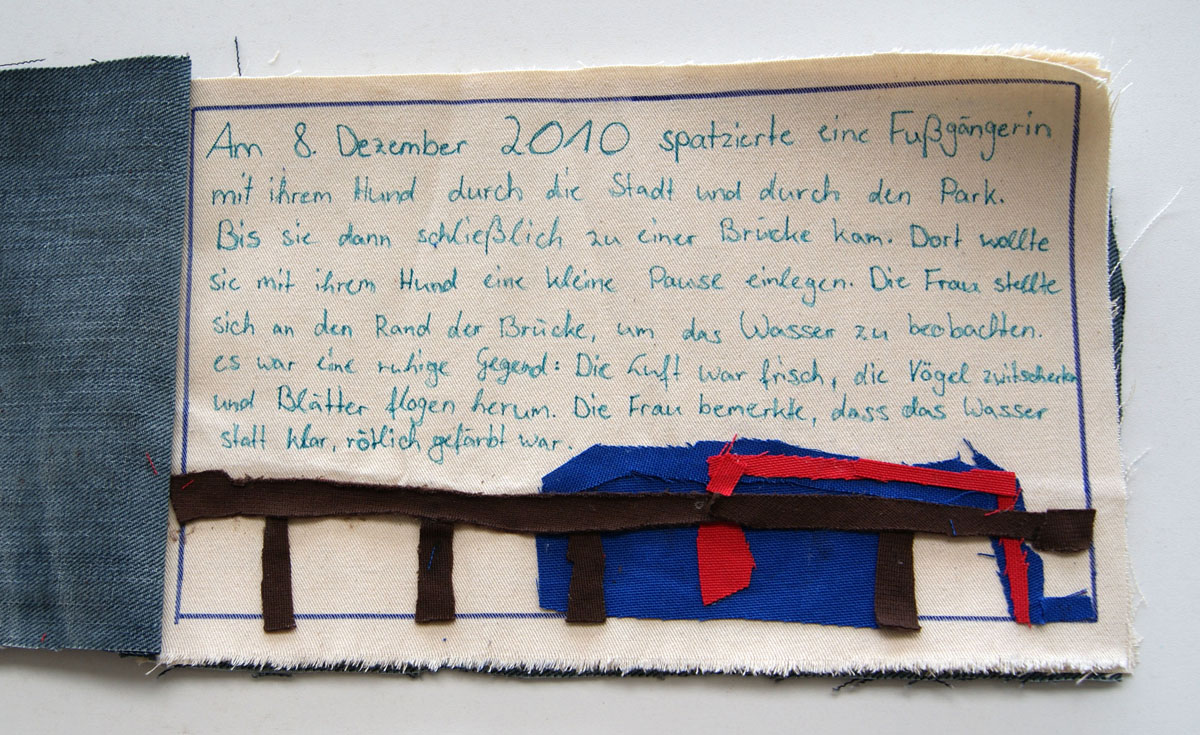 Am 8. Dezember 2010 spatzierte eine Fußgängerin
mit ihrem Hund durch die Stadt und durch den Park.
Bis sie dann schließlich zu einer Brücke kam. Dort wollte
sie mit ihrem Hund eine kleine Pause einlegen. Die Frau stellte
sich an den Rand der Brücke, um das Wasser zu beobachten.
es war eine ruhige Gegend: Die Luft war frisch, die Vögel zwitscherten
und Blätter flogen herum. Die Frau bemerkte, dass das Wasser
statt klar, rötlich gefärbt war.